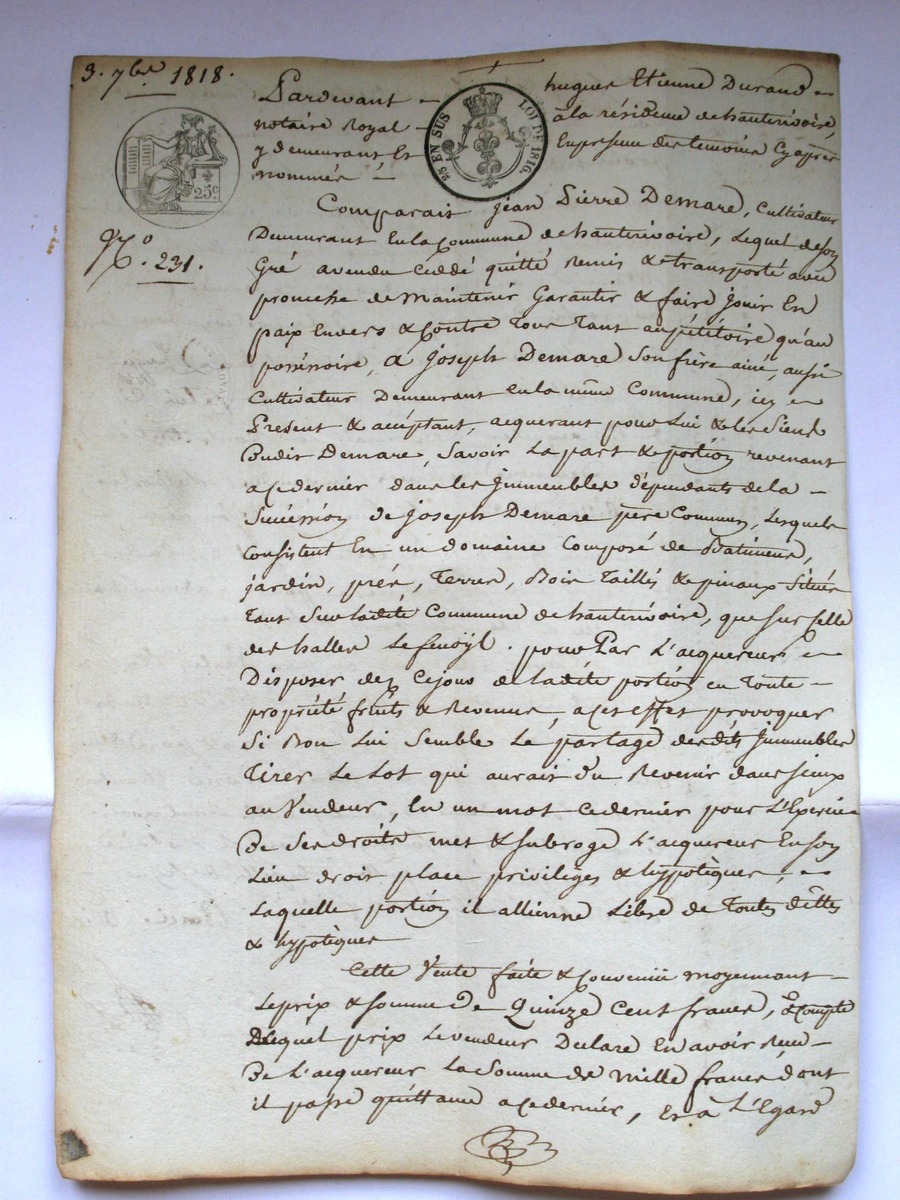 3. 7bre 1818.
Pardevant hugues Etienne Durand
notaire Royal à la résidence de hauterivoire,
y demeurant Et En presence des temoins Cyaprès
nommés
25 EN SUS LOI DE 1816.
25c
No. 231.
Comparait jean Pierre Demare, Cultivateur
Demeurant En la Commune de hauterivoire, Lequel de son
Gré a vendu cèddé quitté Remis & transporté avec
promesse de Maintenir Garantir & faire jouir En
paix Envers & Contre Tous Tant au pétitoire qu'au
possessoire, a joseph Demare son frère ainé, aussi
Cultivateur Demeurant En la même Commune, icy
Present & acéptant, acquerant pour Lui & les Siens
Dudit Demare, Savoir La part & portion revenant
a ce dernier dans les Immeubles dépendants de la
Succession de joseph Demare père Commun, Lesquels
Consistent En un domaine Composé de Batiments,
jardin, prés, Terres, Bois Taillés & pinaux Situés
Tant Sur ladité Commune de hauterivoire, que sur Celle
des halles Le fenoÿl. pour Par L'acquereur
Disposer dez Cejour de ladité portion en Toute
propriété fruits & Revenus, a cet effet provoquer
Si Bon Lui Semble Le partage desdits Immeubles
Tirer Le Lot qui aurait du Revenir dans iceux
au Vendeur, En un mot ce dernier pour L'Exercice
De Ses droits met & subroge L'acquereur En son
Lieu droit place priviliges & hypotèques,
Laquelle portion il allienne Libre de Toutes dêttes
& hypotèques
Cette Vente faite & Convenüe moyennant
Le prix & somme de Quinze Cent francs, à Compte
Duquel prix Le vendeur Declare En avoir Recu
De L'acquereur La Somme de Mille francs dont
il passe quittance a ce dernier, Et à L'Egard